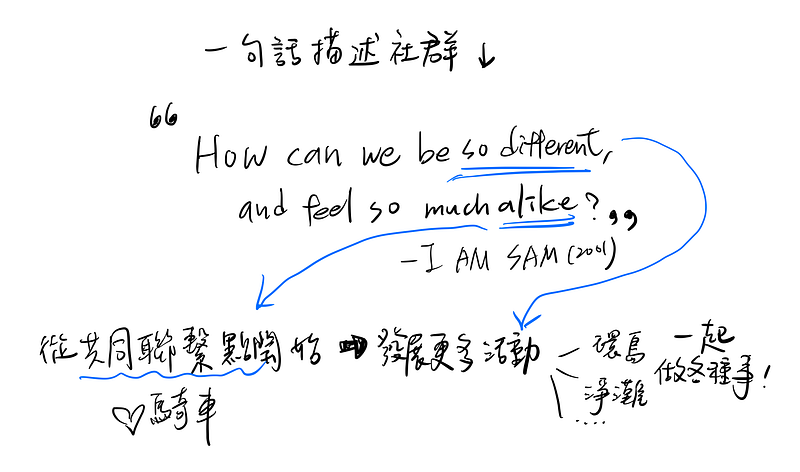 一句話描述社群↓
“How can we be so different,
and feel so much alike?”
－I AM SAM (2001)
從共同聯繫點開始 ➡ 發展更多活動
♡騎車
環島
淨灘
....
一起
做各種事!